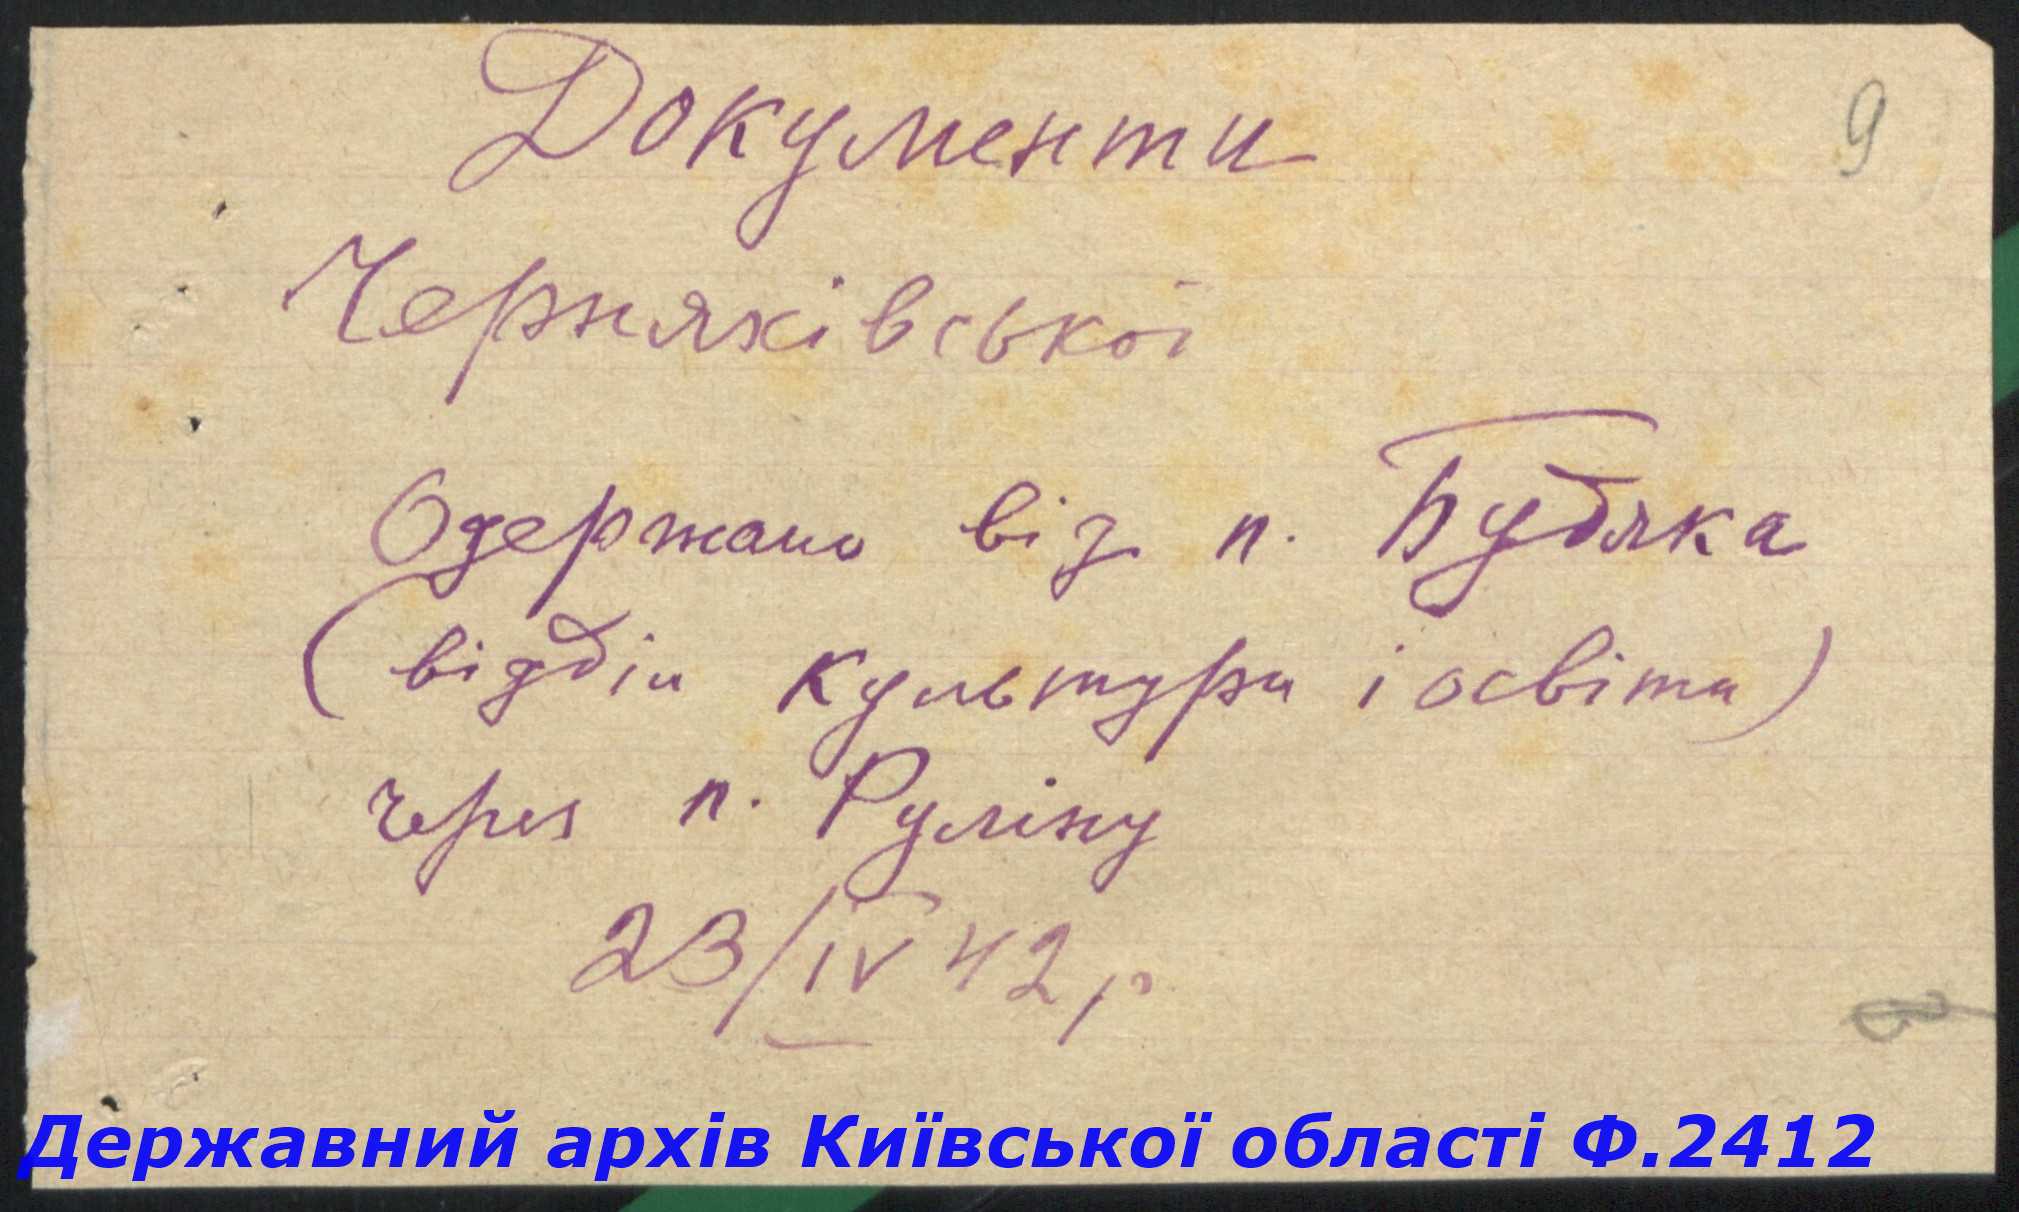 9
Документи
Черняхівської
Одержано від п. Будяка
(відділ культури і освіти)
через п. Руліну
23/IV 42 р.
Державний архів Київської області Ф.2412